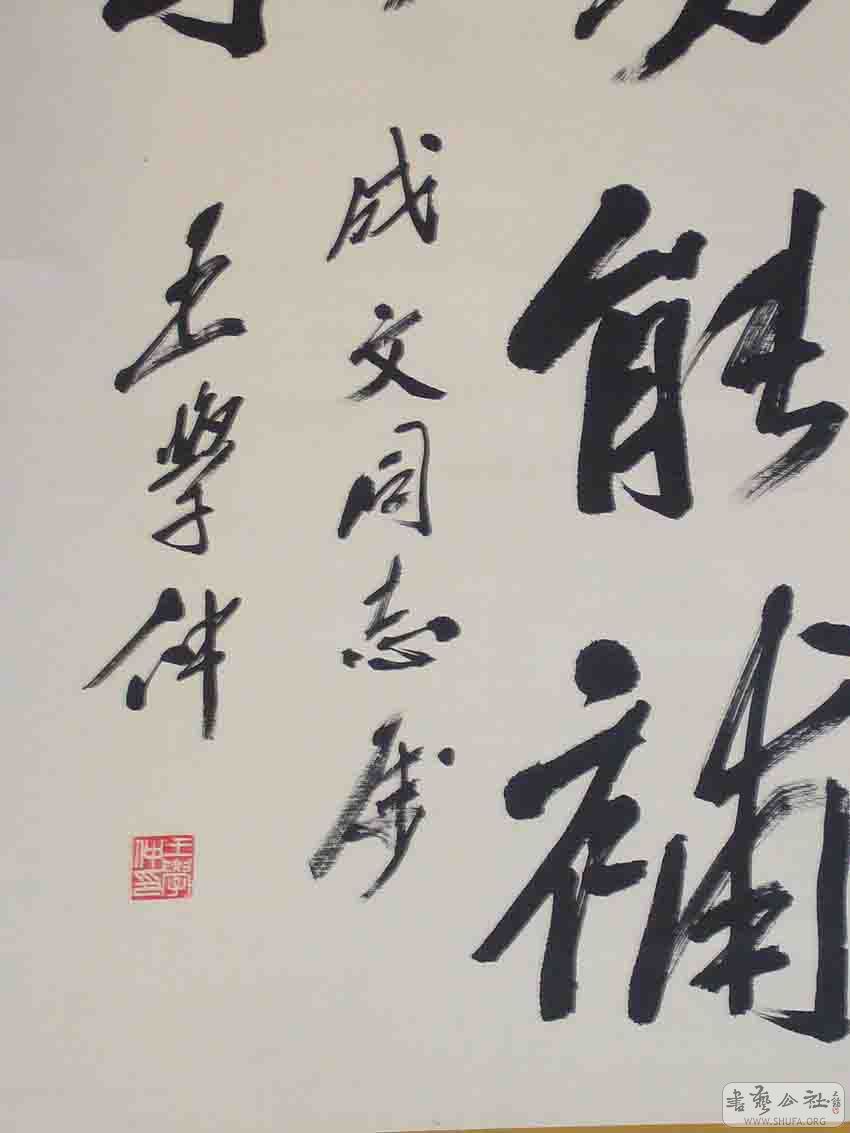 能補
成文同志属
王學仲
王學仲印
書藝公社
WWW.SHUFA.ORG